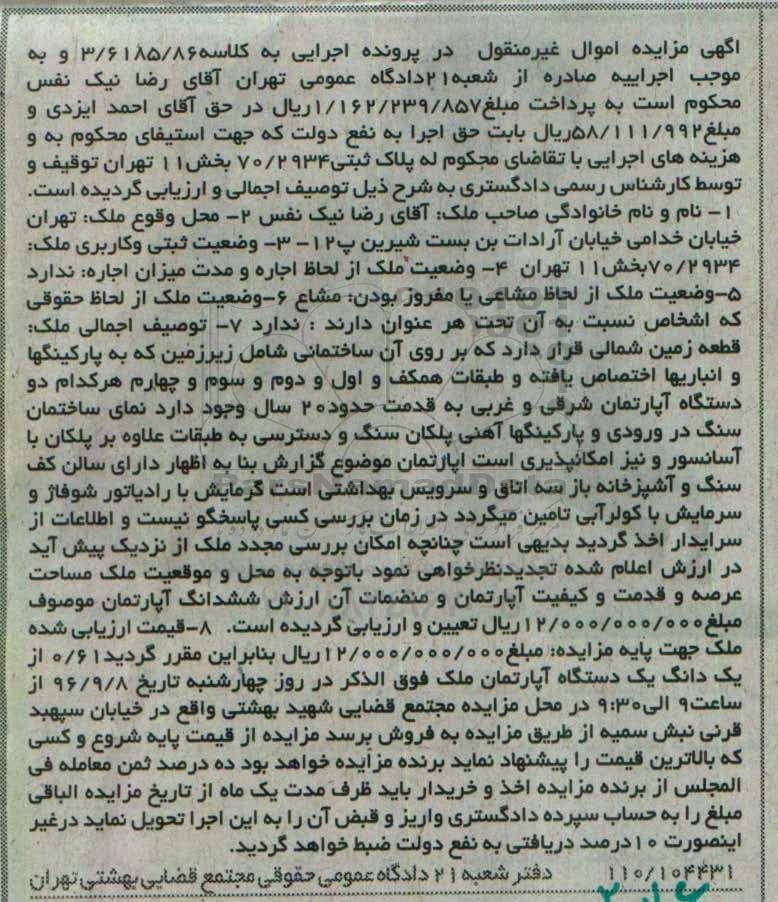 اگهی مزایده اموال غیرمنقول در پرونده اجرایی به کلاسه۳/۶۱۸۵/۸۶ و به
موجب اجراییه صادره از شعبه۲۱دادگاه عمومی تهران آقای رضا نیک نفس
محکوم است به پرداخت مبلغ۱/۱۶۲/۲۳۹/۸۵۷ریال در حق آقای احمد ایزدی و
مبلغ۵۸/۱۱۱/۹۹۲ریال بابت حق اجرا به نفع دولت که جهت استیفای محکوم به و
هزینه های اجرایی با تقاضای محکوم له پلاک ثبتی۷۰/۲۹۳۴ بخش۱۱ تهران توقیف و
توسط کارشناس رسمی دادگستری به شرح ذیل توصیف اجمالی و ارزیابی گردیده است.
۱- نام و نام خانوادگی صاحب ملک: آقای رضا نیک نفس ۲- محل وقوع ملک: تهران
خیابان خدامی خیابان آرادات بن بست شیرین پ۱۲- ۳- وضعیت ثبتی وکاربری ملک:
۷۰/۲۹۳۴بخش۱۱ تهران ۴- وضعیت ملک از لحاظ اجاره و مدت میزان اجاره: ندارد
۵-وضعیت ملک از لحاظ مشاعی یا مفروز بودن: مشاع ۶-وضعیت ملک از لحاظ حقوقی
که اشخاص نسبت به آن تحت هر عنوان دارند : ندارد ۷- توصیف اجمالی ملک:
قطعه زمین شمالی قرار دارد که بر روی آن ساختمانی شامل زیرزمین که به پارکینگها
و انباریها اختصاص یافته و طبقات همکف و اول و دوم و سوم و چهارم هرکدام دو
دستگاه آپارتمان شرقی و غربی به قدمت حدود۲۰ سال وجود دارد نمای ساختمان
سنگ در ورودی و پارکینگها آهنی پلکان سنگ و دسترسی به طبقات علاوه بر پلکان با
آسانسور و نیز امکانپذیری است اپارتمان موضوع گزارش بنا به اظهار دارای سالن کف
سنگ و آشپزخانه باز سه اتاق و سرویس بهداشتی است گرمایش با رادیاتور شوفاژ و
سرمایش با کولرآبی تامین میگردد در زمان بررسی کسی پاسخگو نیست و اطلاعات از
سرایدار اخذ گردید بدیهی است چنانچه امکان بررسی مجدد ملک از نزدیک پیش آید
در ارزش اعلام شده تجدیدنظرخواهی نمود باتوجه به محل و موقعیت ملک مساحت
عرصه و قدمت و کیفیت آپارتمان و منضمات آن ارزش ششدانگ آپارتمان موصوف
مبلغ۱۲/۰۰۰/۰۰۰/۰۰۰ریال تعیین و ارزیابی گردیده است. ۸-قیمت ارزیابی شده
ملک جهت پایه مزایده: مبلغ۱۲/۰۰۰/۰۰۰/۰۰۰ریال بنابراین مقرر گردید۰/۶۱ از
یک دانگ یک دستگاه آپارتمان ملک فوق الذکر در روز چهارشنبه تاریخ ۹۶/۹/۸ از
ساعت۹ الی۹:۳۰ در محل مزایده مجتمع قضایی شهید بهشتی واقع در خیابان سپهبد
قرنی نبش سمیه از طریق مزایده به فروش برسد مزایده از قیمت پایه شروع و کسی
که بالاترین قیمت را پیشنهاد نماید برنده مزایده خواهد بود ده درصد ثمن معامله فی
المجلس از برنده مزایده اخذ و خریدار باید ظرف مدت یک ماه از تاریخ مزایده الباقی
مبلغ را به حساب سپرده دادگستری واریز و قبض آن را به این اجرا تحویل نماید درغیر
اینصورت ۱۰درصد دریافتی به نفع دولت ضبط خواهد گردید.
۱۱۰/۱۰۴۴۳۱ دفتر شعبه ۲۱ دادگاه عمومی حقوقی مجتمع قضایی بهشتی تهران